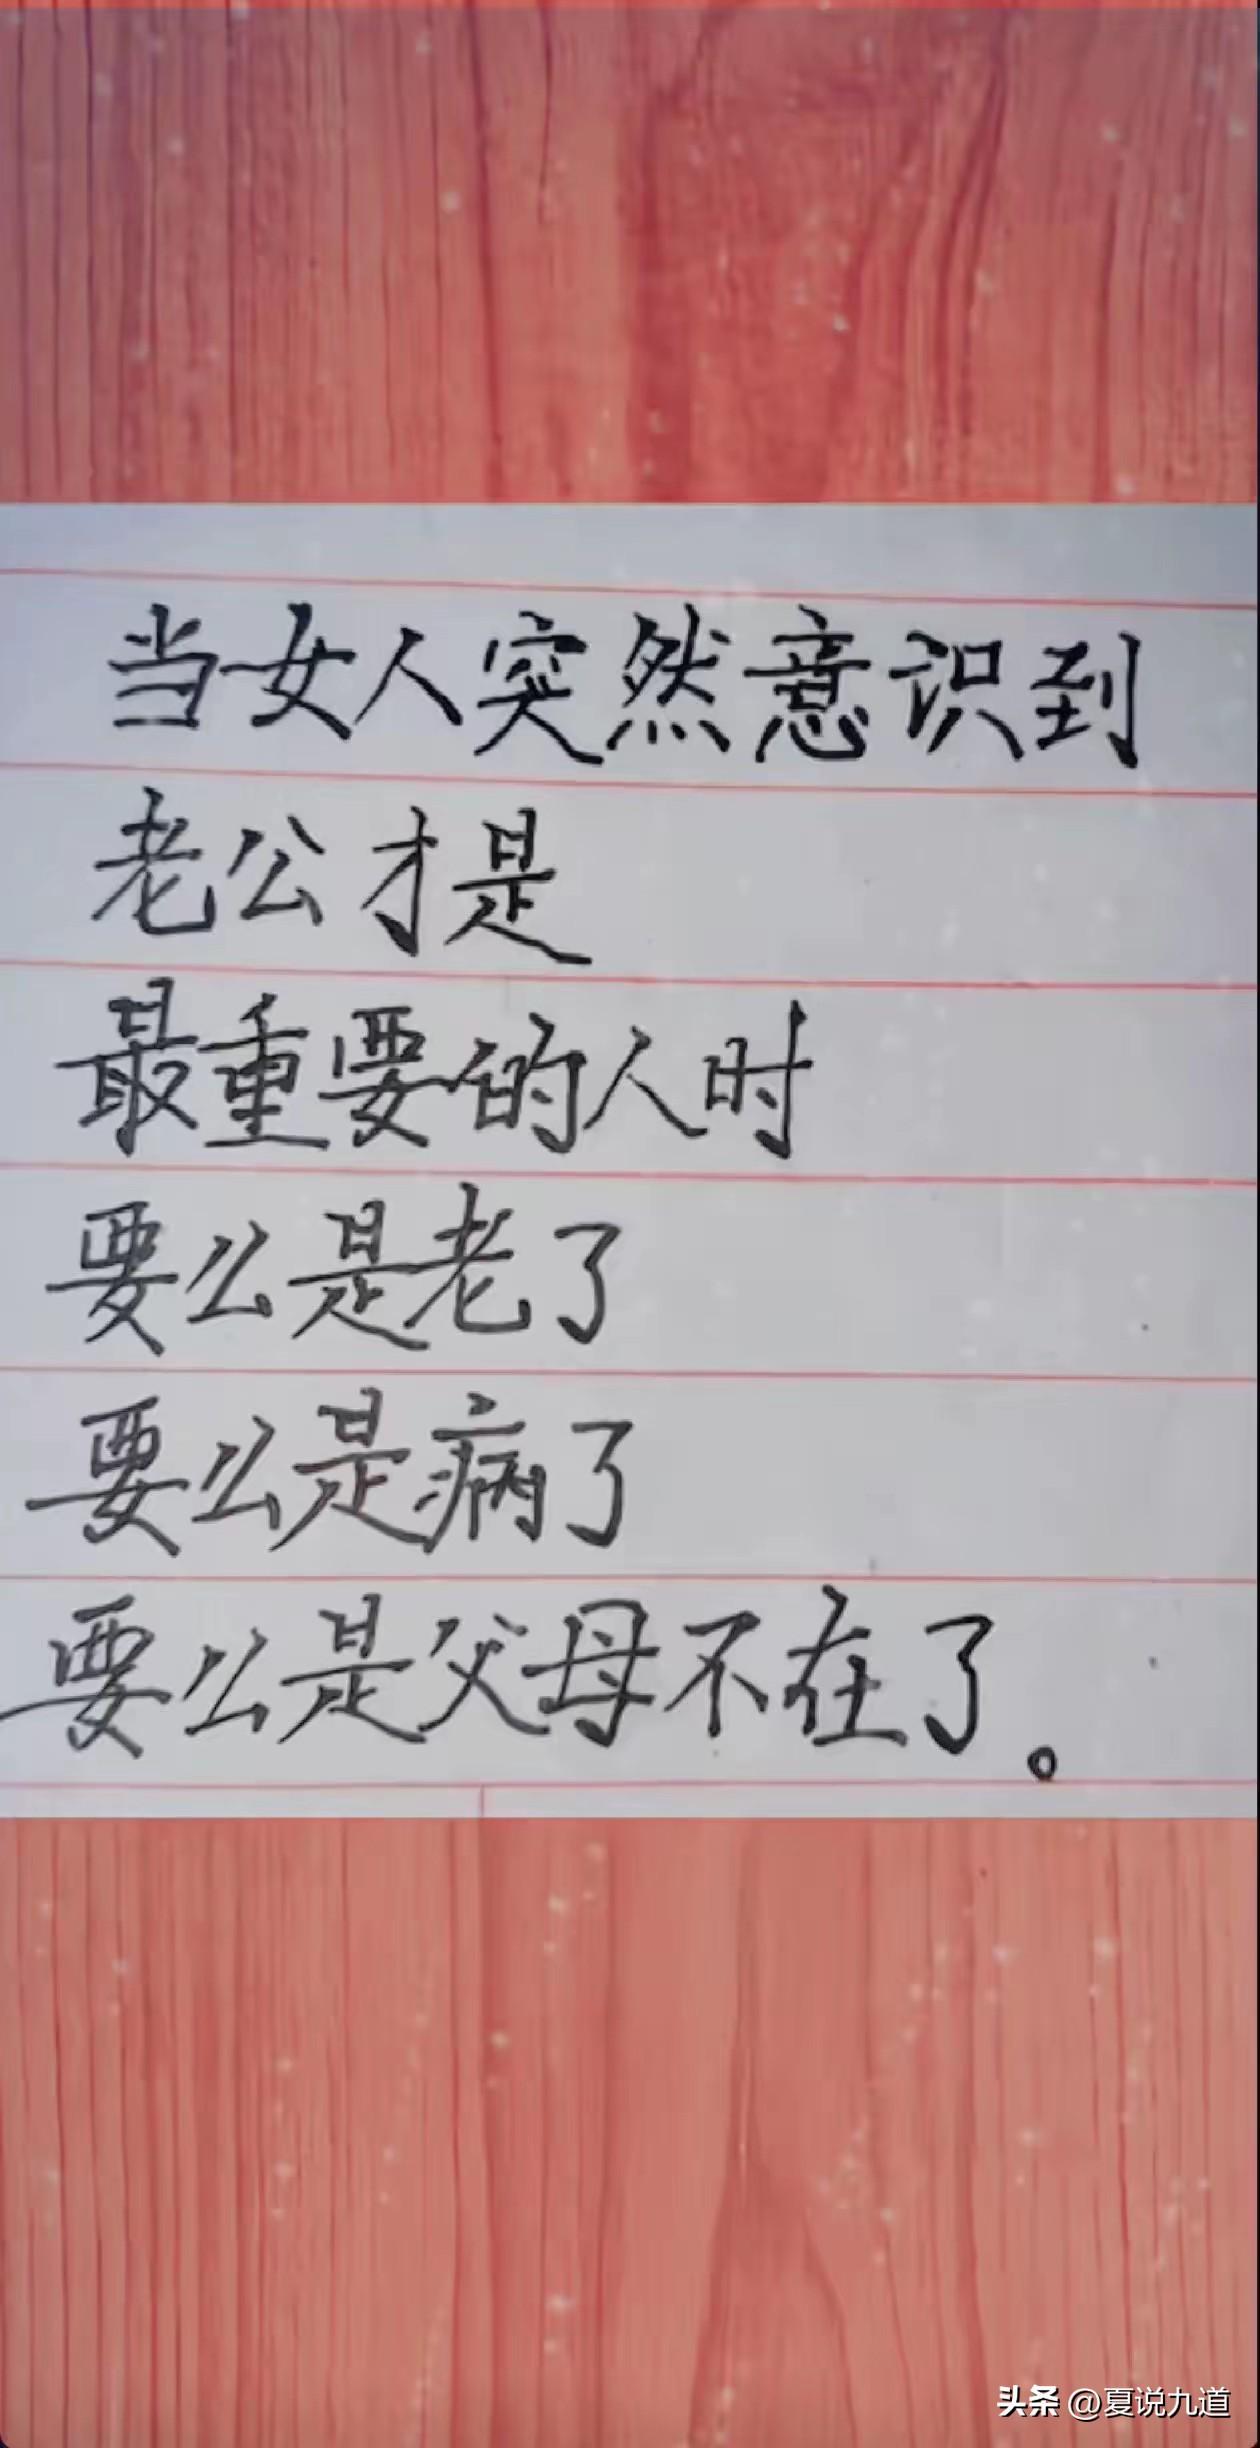 当女人突然意识到
老公才是
最重要的人时
要么是老了
要么是病了
要么是父母不在了。
头条 @夏说九道